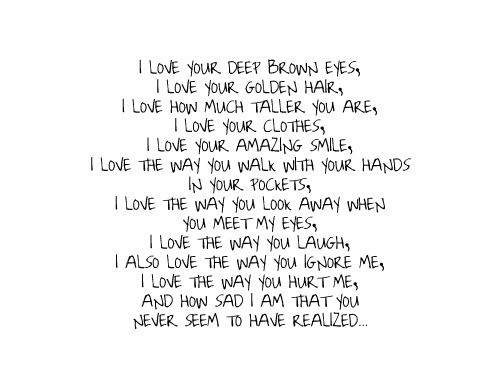 I LOVE YOUR DEEP BROWN EYES,
I LOVE YOUR GOLDEN HAIR,
I LOVE HOW MUCH TALLER YOU ARE,
I LOVE YOUR CLOTHES,
I LOVE YOUR AMAZING SMILE,
I LOVE THE WAY YOU WALK WITH YOUR HANDS
IN YOUR POCKETS,
I LOVE THE WAY YOU LOOK AWAY WHEN
YOU MEET MY EYES,
I LOVE THE WAY YOU LAUGH,
I ALSO LOVE THE WAY YOU IGNORE ME,
I LOVE THE WAY YOU HURT ME,
AND HOW SAD I AM THAT YOU
NEVER SEEM TO HAVE REALIZED...